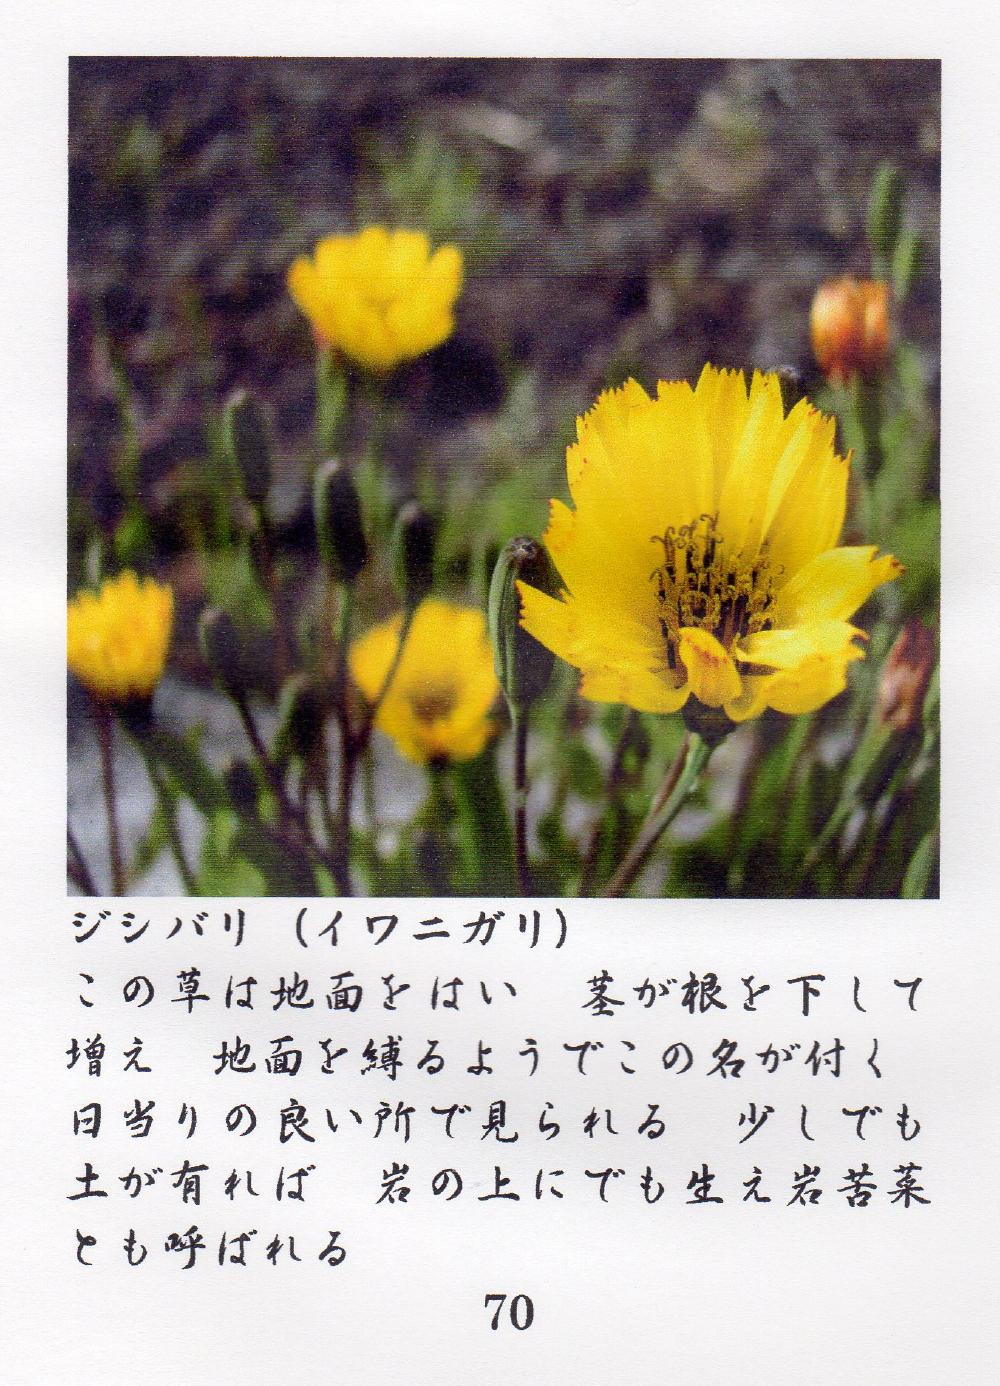 ジシバリ （イワニガリ）
この草は地面をはい　茎が根を下して
増え　地面を縛るようでこの名が付く
日当りの良い所で見られる　少しでも
土が有れば　岩の上にでも生え岩苦菜
とも呼ばれる
70